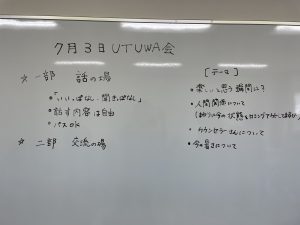 7月3日 UTUWA会
☆ 一部 話の場
・「いいっぱなし、聞きっぱなし」
・話す内容は自由
・パスOK
☆ 二部 交流の場
[テーマ]
・楽しいと思う瞬間は?
・人間関係について
・カウンセラーさんについて
・今の暑さについて